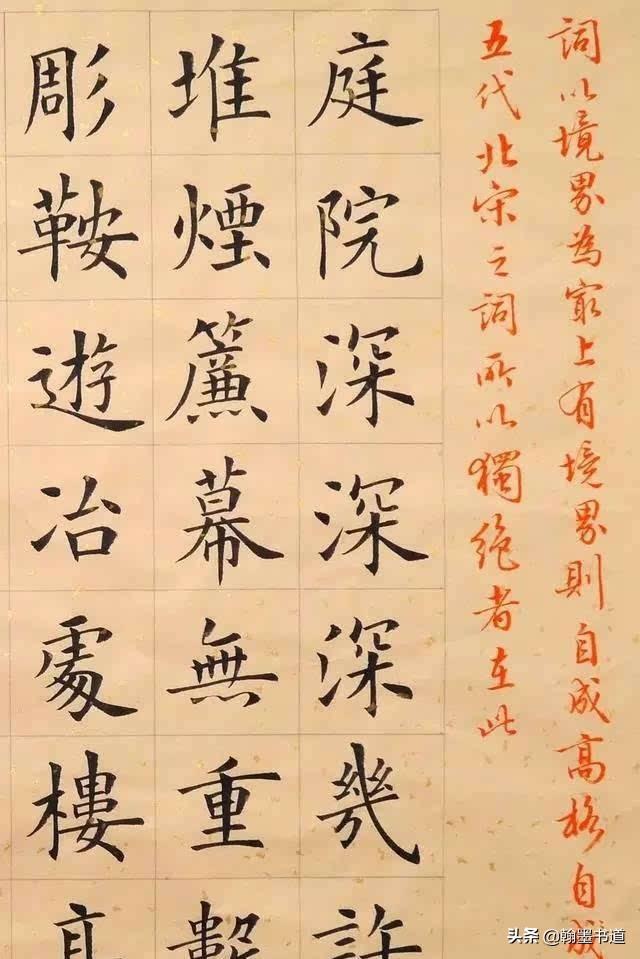 詞以境界為最上有境界則自成高格自成
五代北宋之詞所以獨絕者在此
庭院深深深幾許
堆煙簾幕無重數
彫鞍遊冶處樓高
头条 @翰墨书道